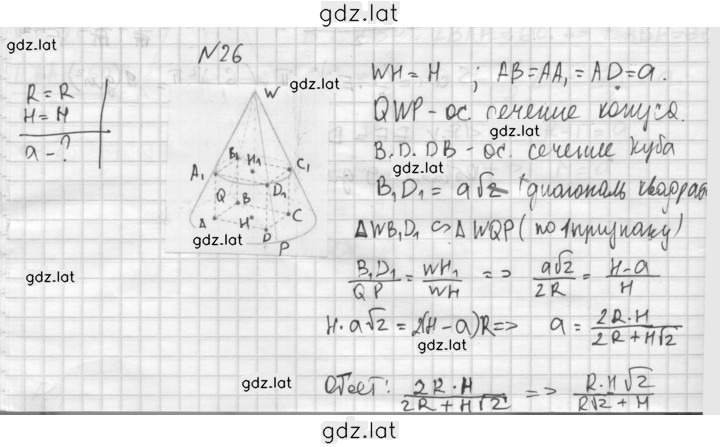 gdz.lat
gdz.lat
№26
R = R
H = H
a - ?
gdz.lat
W
B₁
H₁
C₁
A₁
D₁
Q
B
A
H
C
D
P
gdz.lat
WH = H ; AB = AA₁ = AD = a.
QWP - ос. сечение конуса.
gdz.lat
B₁D₁DB - ос. сечение куба
gdz.lat
B₁D₁ = a√2 диагональ квадрат
ΔWB₁D₁ ∽ ΔWQP (по 1 признаку)
B₁D₁/QP = WH₁/WH => a√2/2R = H-a/H
gdz.lat
H·a√2 = 2(H-a)R => a = 2R·H/2R+H√2
gdz.lat
gdz.lat
Ответ: 2R·H/2R+H√2 => R·H√2/R√2+H
gdz.lat